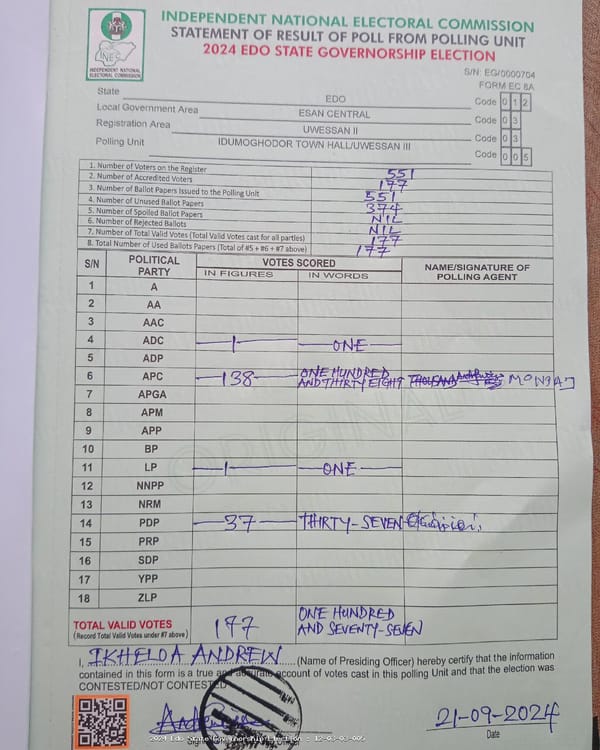 INDEPENDENT NATIONAL ELECTORAL COMMISSION
STATEMENT OF RESULT OF POLL FROM POLLING UNIT
2024 EDO STATE GOVERNORSHIP ELECTION
INEC
INDEPENDENT NATIONAL
ELECTORAL COMMISSION
S/N: EG/0000704
FORM EC 8A
State EDO Code 0 1 2
Local Government Area ESAN CENTRAL Code 0 3
Registration Area UWESSAN II Code 0 3
Polling Unit IDUMOGHODOR TOWN HALL/UWESSAN III Code 0 0 5
1. Number of Voters on the Register 551
2. Number of Accredited Voters 177
3. Number of Ballot Papers Issued to the Polling Unit 551
4. Number of Unused Ballot Papers 374
5. Number of Spoiled Ballot Papers NIL
6. Number of Rejected Ballots NIL
7. Number of Total Valid Votes (Total Valid Votes cast for all parties) 177
8. Total Number of Used Ballots Papers (Total of #5 + #6 + #7 above) 177
S/N POLITICAL PARTY VOTES SCORED NAME/SIGNATURE OF POLLING AGENT
IN FIGURES IN WORDS
1 A
2 AA
3 AAC
4 ADC 1 ONE
5 ADP
6 APC 138 ONE HUNDRED AND THIRTY EIGHT THOUSAND
7 APGA
8 APM
9 APP
10 BP
11 LP 1 ONE
12 NNPP
13 NRM
14 PDP 37 THIRTY-SEVEN
15 PRP
16 SDP
17 YPP
18 ZLP
ORIGINAL
TOTAL VALID VOTES 177 ONE HUNDRED
(Record Total Valid Votes under #7 above) AND SEVENTY-SEVEN
I, IKHELOA ANDREW (Name of Presiding Officer) hereby certify that the information
contained in this form is a true and accurate account of votes cast in this polling Unit and that the election was
CONTESTED/NOT CONTESTED
21-09-2024
Date
2024 Edo State Governorship Election : 12-03-03-005